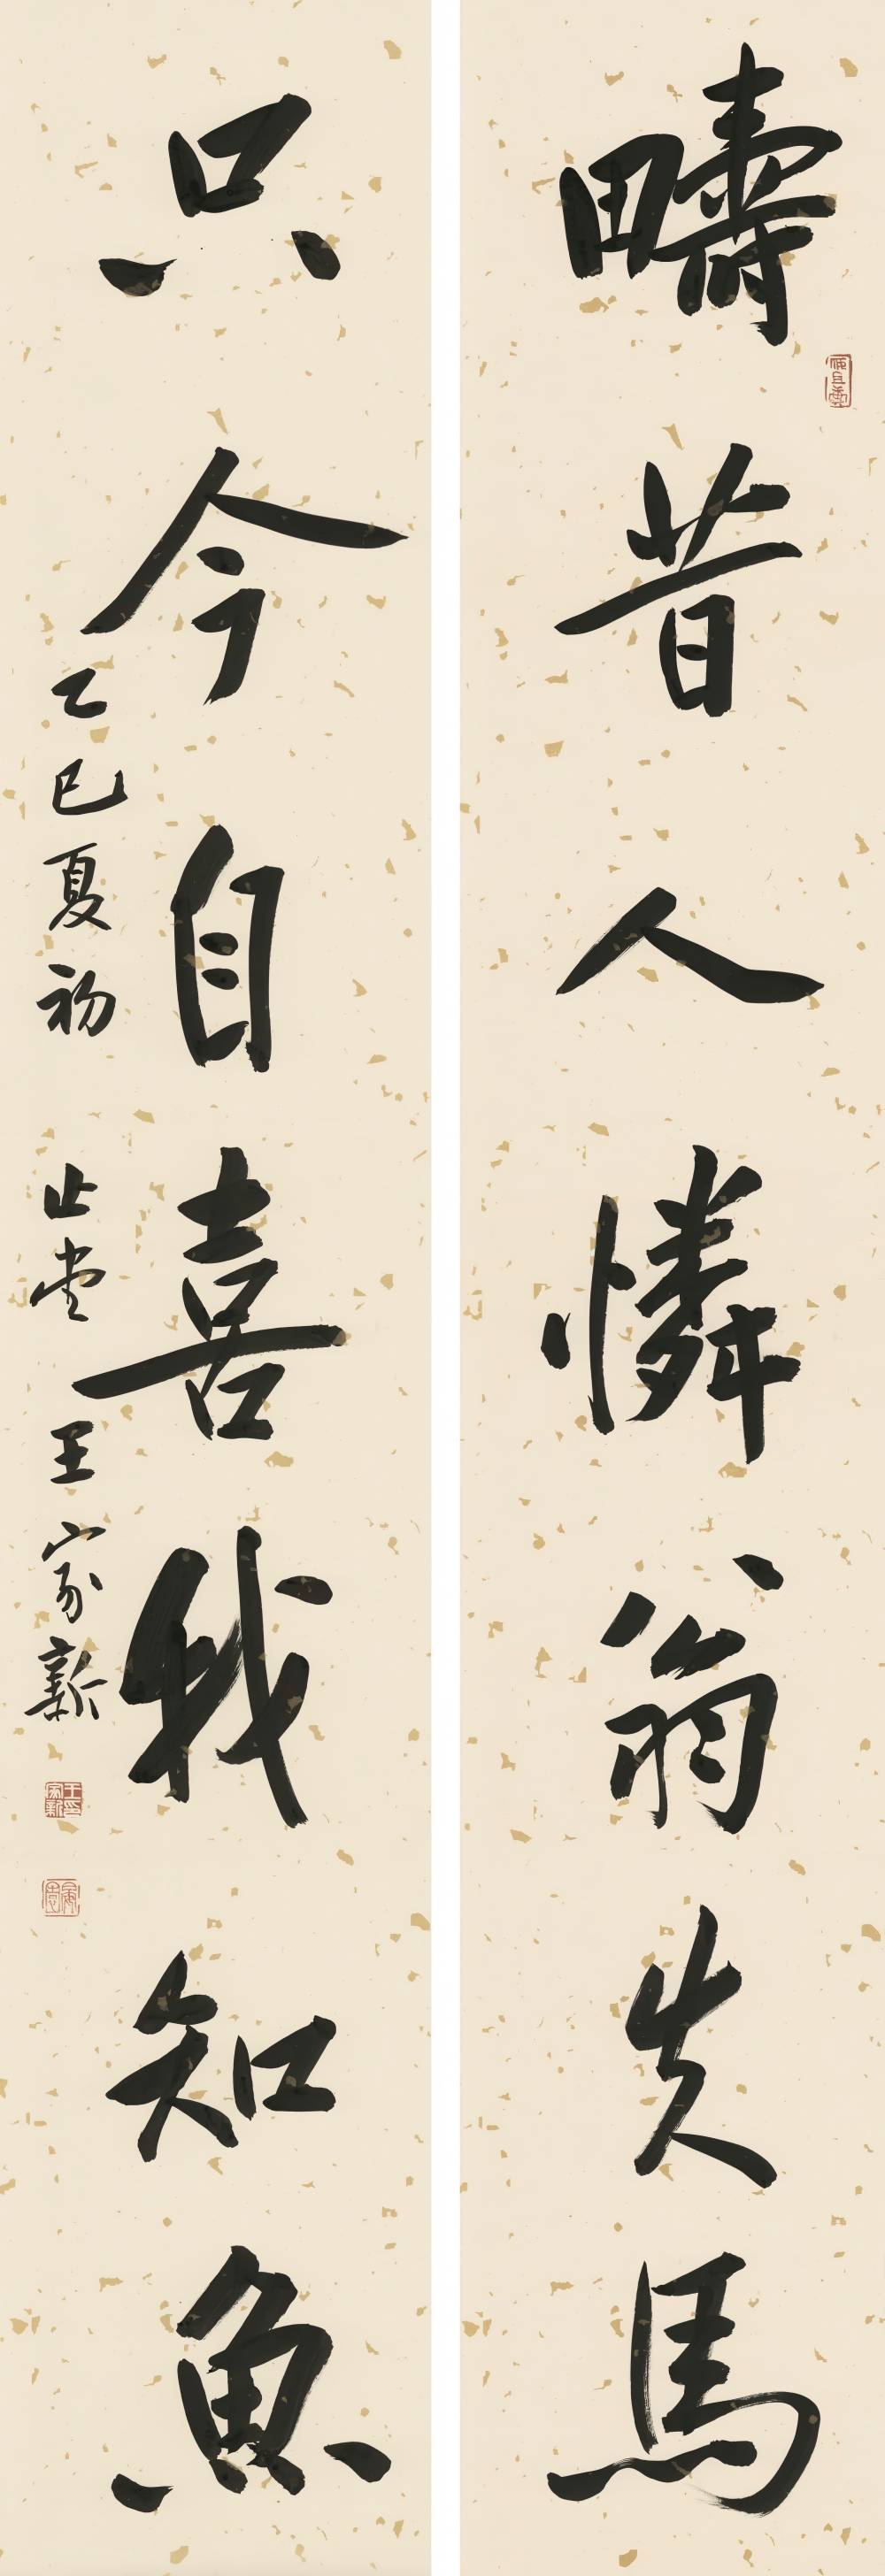 疇昔人憐翁失馬
只今自喜我知魚
乙巳夏初 止堂 王家新
王家新印